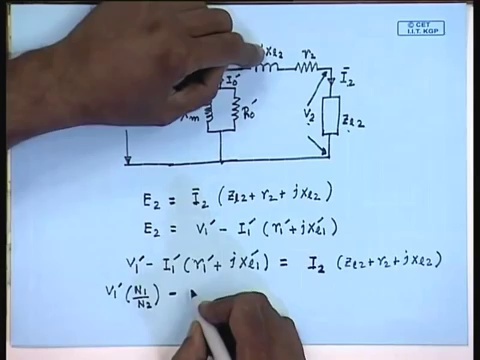 © CET
I.I.T. KGP
jxl2 r2
I0' Ī2
Xm R0' V2 Zl2
E2 = Ī2 (Zl2 + r2 + jxl2)
E2 = V1' - I1' (r1' + jxl1')
V1' - I1' (r1' + jxl1') = I2 (Zl2 + r2 + jxl2)
V1' (N1/N2) -